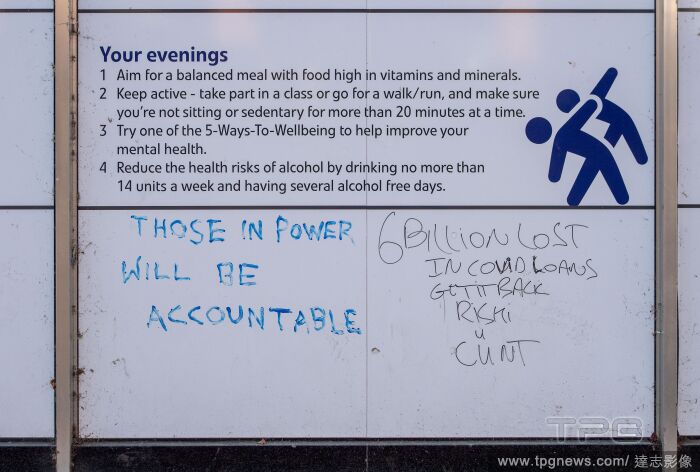 Your evenings
1 Aim for a balanced meal with food high in vitamins and minerals.
2 Keep active - take part in a class or go for a walk/run, and make sure
you're not sitting or sedentary for more than 20 minutes at a time.
3 Try one of the 5-Ways-To-Wellbeing to help improve your
mental health.
4 Reduce the health risks of alcohol by drinking no more than
14 units a week and having several alcohol free days.
THOSE IN POWER
WILL BE
ACCOUNTABLE
6 BILLION LOST
IN COVID LOANS
GET IT BACK
RISHI
U
CUNT
TPG
www.tpgnews.com/ 達志影像